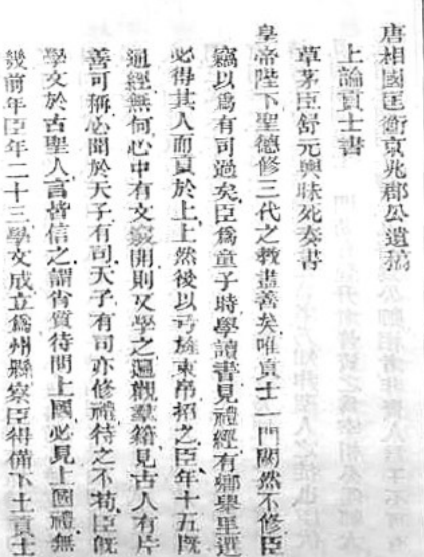 唐相國匡衡京兆郡公遺稿
上論貢士書
草茅臣舒元輿昧死奏書
皇帝陛下聖德修三代之教盡善矣唯貢士一門闕然不修臣
竊以爲有司過矣臣爲童子時學讀書見禮經有鄉舉里選
必得其人而貢於上上然後以弓旌束帛招之臣年十五旣
通經無何心中有文竅開則又學之遍觀羣籍見古人有片
善可稱必聞於天子有司天子有司亦修禮待之不苟臣旣
學文於古聖人言皆信之謂肖質待問上國必見上國禮無
幾前年臣年二十三學文成立爲州縣察臣得備下土貢士